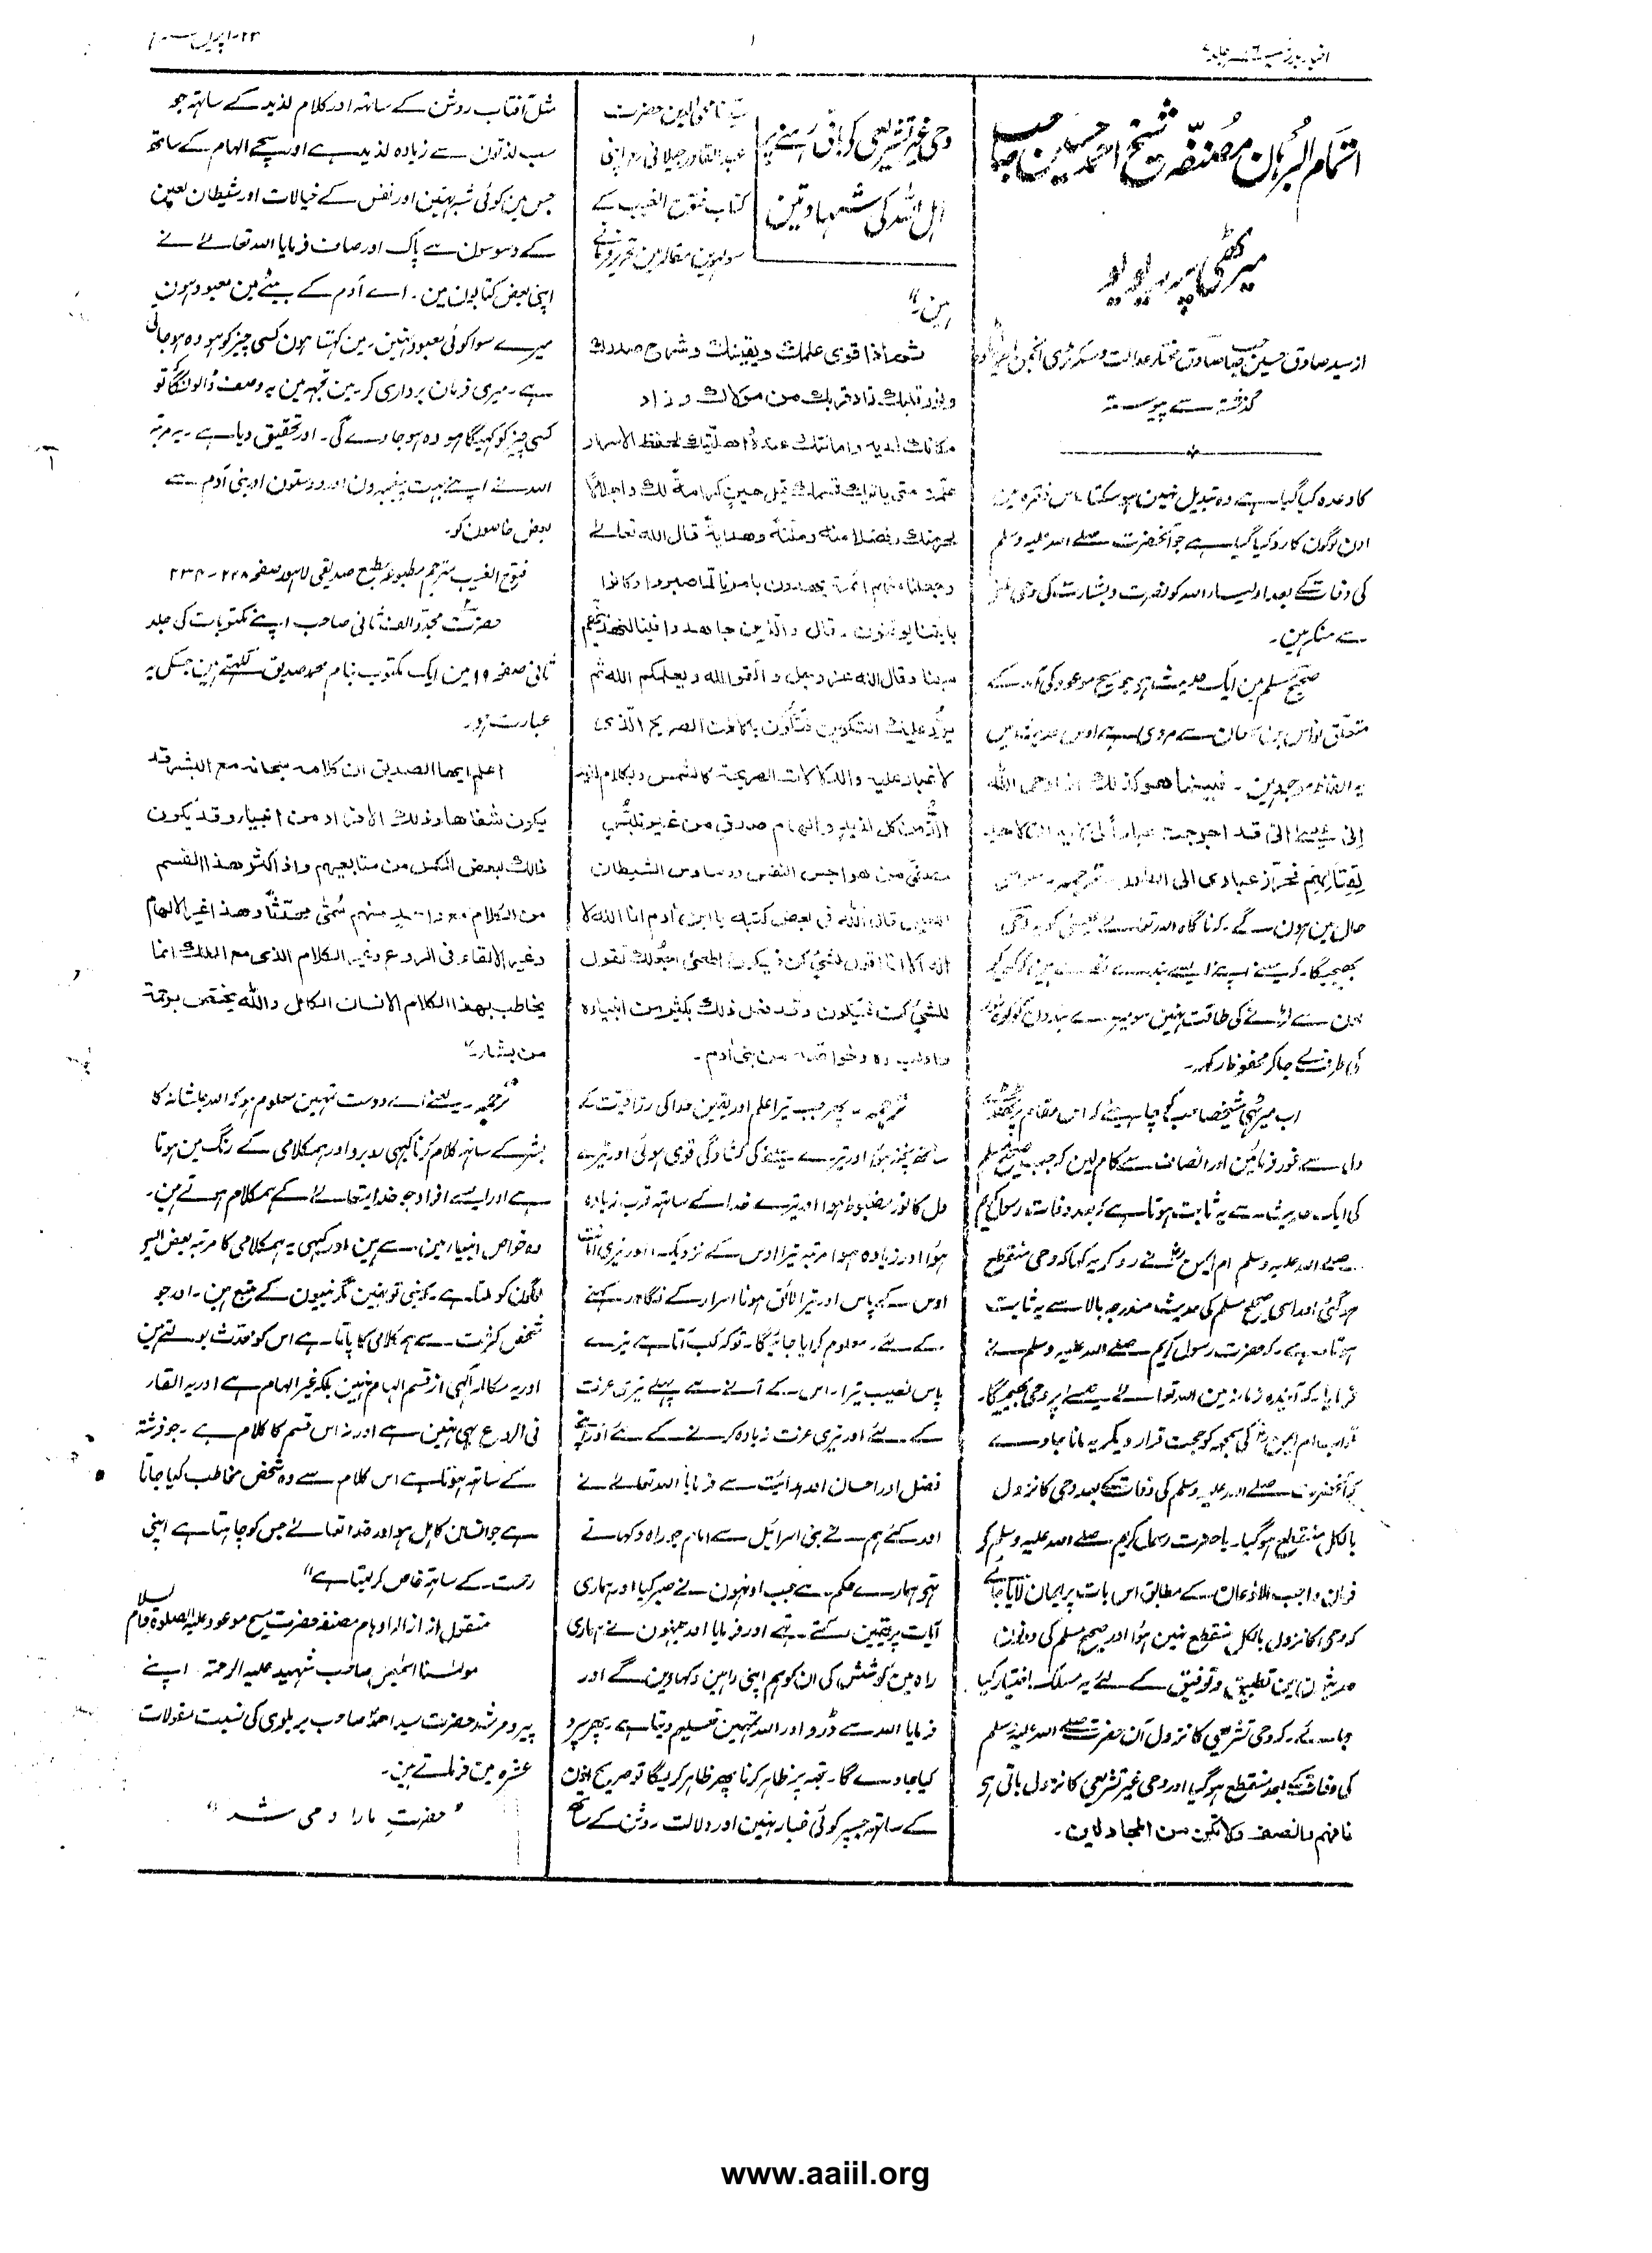 اخبار بدر نمبر ۱۶ جلد
۱
۲۳-اپریل
اتمام البرہان مصنفہ شیخ احمد حسین صاحب
میرٹھی پر ریویو
از سید صادق حسین صاحب صادق مختار عدالت و سکرٹری انجمن
گذشتہ سے پیوستہ
کا وعدہ کیا گیا ہے وہ تبدیل نہین ہو سکتا۔ اس فقرہ مین
اون لوگون کا رد کیا گیا ہے جو آنحضرت صلے اللہ علیہ وسلم
کی وفات کے بعد اولیاء اللہ کو نصرت و بشارت کی وحی
سے منکر ہین۔
صحیح مسلم مین ایک حدیث ہے جو مسیح موعود کی آمد کے
متعلق نواس بن سمعان سے مروی ہے اوس حدیث مین
یہ الفاظ موجود ہین۔ فبینما هو كذلك اذ اوحی الله
الی عیسیٰ انی قد اخرجت عباداً لی لا یدان لاحد
بقتالہم فحرز عبادی الی الطور۔ ترجمہ۔ اس
حال مین ہون گے کہ ناگاہ اللہ تعالےٰ عیسیٰ کو وحی
بھیجیگا۔ کہ مینے اپنے ایسے بندے نکالے ہین کہ کسی کو
اون سے لڑنے کی طاقت نہین سو میرے بندون کو کوہ طور
کی طرف لے جا کر محفوظ رکھ۔
اب میرٹھی شیخ صاحب کو چاہیئے کہ اس مقام پر ٹھنڈے
دل سے غور فرمائین اور انصاف سے کام لین کہ جب صحیح مسلم
کی ایک حدیث سے یہ ثابت ہوتا ہے کہ بعد وفات رسول کریم
صلے اللہ علیہ وسلم ام ایمن نے رو کر یہ کہا کہ وحی منقطع
ہو گئی اور اسی صحیح مسلم کی حدیث مندرجہ بالا سے یہ ثابت
ہوتا ہے۔ کہ حضرت رسول کریم صلے اللہ علیہ وسلم نے
فرمایا۔ کہ آیندہ زمانہ مین اللہ تعالےٰ عیسےٰ پر وحی بھیجیگا۔
تو اب ام ایمن کی سمجھ کو حجت قرار دیکر یہ مانا جاوے
کہ آنحضرت صلے اللہ علیہ وسلم کی وفات کے بعد وحی کا نزول
بالکل منقطع ہو گیا۔ یا حضرت رسول کریم صلے اللہ علیہ وسلم کے
فرمان واجب الاذعان کے مطابق اس بات پر ایمان لایا جائے
کہ وحی کا نزول بالکل منقطع نہین ہوُا اور صحیح مسلم کی دونون
حدیثون مین تطبیق و توفیق کے لئے یہ مسلک اختیار کیا
جائے۔ کہ وحی تشریعی کا نزول آن حضرت صلے اللہ علیہ وسلم
کی وفات کے بعد منقطع ہو گیا اور وحی غیر تشریعی کا نزول باقی ہو
فافہم والنصف ولا تکن من المجادلین۔
وحی غیر تشریعی کے باقی رہنے پر
اہل اللہ کی شہادتین
سیدنا محی الدین حضرت
عبد القادر جیلانی رہ اپنی
کتاب فتوح الغیب کے
سولہوین مقالہ مین تحریر فرماتے
ہین۔"
ثم اذا قوی علمك ویقینك وشرح صدرك
ونور قلبك زاد قربك من مولاك وزاد
مکانك لدیہ وامانتك عندہ واهلیتك لحفظ الاسرار
علمت متی یاتیك قسمك قبل حینہ کرامة لك واجلالا
لحرمتك وفضلا منه ومنة وهدایة قال الله تعالےٰ
وجعلنا منهم ائمة یهدون بامرنا لما صبروا وکانوا
بایتنا یوقنون۔ وقال والذین جاهدوا فینا لنهدینهم
سبلنا وقال الله عز وجل واتقوا الله ویعلمکم الله ثم
یرد علیك التکوین فتکون بالاذن الصریح الذی
لا غبار علیه والدلالات الصریحة کالشمس وبکلام لذیذ
الذ من کل لذیذ والهام صدق من غیر تلبس
مصفی من هواجس النفس ووساوس الشیطان
اللعین قال الله فی بعض کتبه یا ابن آدم انا الله لا
اله الا انا اقول لشئ کن فیکون اطعنی اجعلك تقول
للشئ کن فیکون وقد فعل ذلك بکثیر من انبیاءہ
واولیاءہ وخواصہ من بنی آدم۔
ترجمہ۔ پھر جب تیرا علم اور یقین خدا کی رزاقیت کے
ساتھ پختہ ہوُا اور تیرے سینہ کی کشادگی قوی ہوئی اور تیرے
دل کا نور مضبوط ہوا اور تیرے خدا کے ساتھ قرب زیادہ
ہوُا اور زیادہ ہوا مرتبہ تیرا اوس کے نزدیک۔ اور تیری امانت
اوس کے پاس اور تیرا لائق ہونا اسرار کے نگاہ رکھنے
کے لئے۔ معلوم کرایا جائیگا۔ تو کہ کب آتا ہے تیرے
پاس نصیب تیرا۔ اس کے آنے سے پہلے تیری عزت
کے لئے اور تیری عزت زیادہ کرنے کے لئے اور اپنے
فضل اور احسان اور ہدایت سے فرمایا اللہ تعالےٰ نے
اور کئے ہم نے بنی اسرائیل سے امام جو راہ دکھاتے
تھے ہمارے حکم سے جب اونہون نے صبر کیا اور ہماری
آیات پر یقین رکھتے تھے اور فرمایا اور جنہون نے ہماری
راہ مین کوشش کی ان کو ہم اپنی راہین دکھادین گے اور
فرمایا اللہ سے ڈرو اور اللہ تمہین تعلیم دیتا ہے پھر سپرد
کیا جاوے گا۔ تجھ پر ظاہر کرنا پھر ظاہر کریگا تو صریح اذن
کے ساتھ جسپر کوئی غبار نہین اور دلالت روشن کے ساتھ
مثل آفتاب روشن کے ساتھ اور کلام لذیذ کے ساتھ جو
سب لذتون سے زیادہ لذیذ ہے اور سچے الہام کے ساتھ
جس مین کوئی شبہ نہین اور نفس کے خیالات اور شیطان لعین
کے وسوسون سے پاک اور صاف فرمایا اللہ تعالےٰ نے
اپنی بعض کتابون مین۔ اے آدم کے بیٹے مین معبود ہون
میرے سوا کوئی معبود نہین۔ مین کہتا ہون کسی چیز کو ہو وہ ہو جاتی
ہے۔ میری فرمان برداری کر۔ مین تجھ مین یہ وصف ڈالونگا کہ تو
کسی چیز کو کہیگا ہو وہ ہو جاوے گی۔ اور تحقیق دیا ہے۔ یہ مرتبہ
اللہ نے اپنے بہت پیغمبرون اور دوستون اور بنی آدم سے
بعض خاصون کو۔
فتوح الغیب مترجم مطبوعہ مطبع صدیقی لاہور صفحہ ۲۲۸-۲۳۴
حضرت مجدد الف ثانی صاحب اپنے مکتوبات کی جلد
ثانی صفحہ ۹۹ مین ایک مکتوب بنام محمد صدیق لکھتے ہین جسکی یہ
عبارت ہو۔
اعلم ایها الصدیق ان کلامه سبحانه مع البشر قد
یکون شفاها وذلك الافراد من انبیاء وقد یکون
ذالك لبعض الکمل من متابعیهم واذا کثر هذا القسم
من الکلام مع واحد منهم سُمّی محدَّثا وهذا غیر الالهام
وغیر الالقاء فی الروع وغیر الکلام الذی مع الملك انما
یخاطب بهذا الکلام الانسان الکامل والله یختص برحمة
من یشاء"
ترجمہ۔ یعنے اے دوست تمہین معلوم ہو کہ اللہ جلشانہ کا
بشر کے ساتھ کلام کرنا کبھی روبرو اور ہمکلامی کے رنگ مین ہوتا
ہے اور ایسے افراد جو خدا یتعالےٰ کے ہمکلام ہوتے ہین۔
وہ خواص انبیاء مین سے ہین اور کبھی یہ ہمکلامی کا مرتبہ بعض ایسے
لوگون کو ملتا ہے۔ کہ نبی تو نہین مگر نبیون کے متبع ہین۔ اور جو
شخص کثرت سے ہم کلامی کا پاتا ہے اس کو محدّث بولتے ہین
اور یہ مکالمہ الٰہی از قسم الہام نہین بلکہ غیر الہام ہے اور یہ القاء
فی الروع بھی نہین ہے اور نہ اس قسم کا کلام ہے۔ جو فرشتہ
کے ساتھ ہوتا ہے اس کلام سے وہ شخص مخاطب کیا جاتا
ہے جو انسان کامل ہو اور خدا تعالےٰ جس کو چاہتا ہے اپنی
رحمت کے ساتھ خاص کر لیتا ہے"
منقول از ازالہ اوہام مصنفہ حضرت مسیح موعود علیہ الصلوٰة والسلام
مولٰنا اسمٰعیل صاحب شہید علیہ الرحمة اپنے
پیر و مرشد حضرت سید احمدؒ صاحب بریلوی کی نسبت مقولات
عشرہ مین فرماتے ہین۔
"حضرتِ مارا وحی شد"
www.aaiil.org